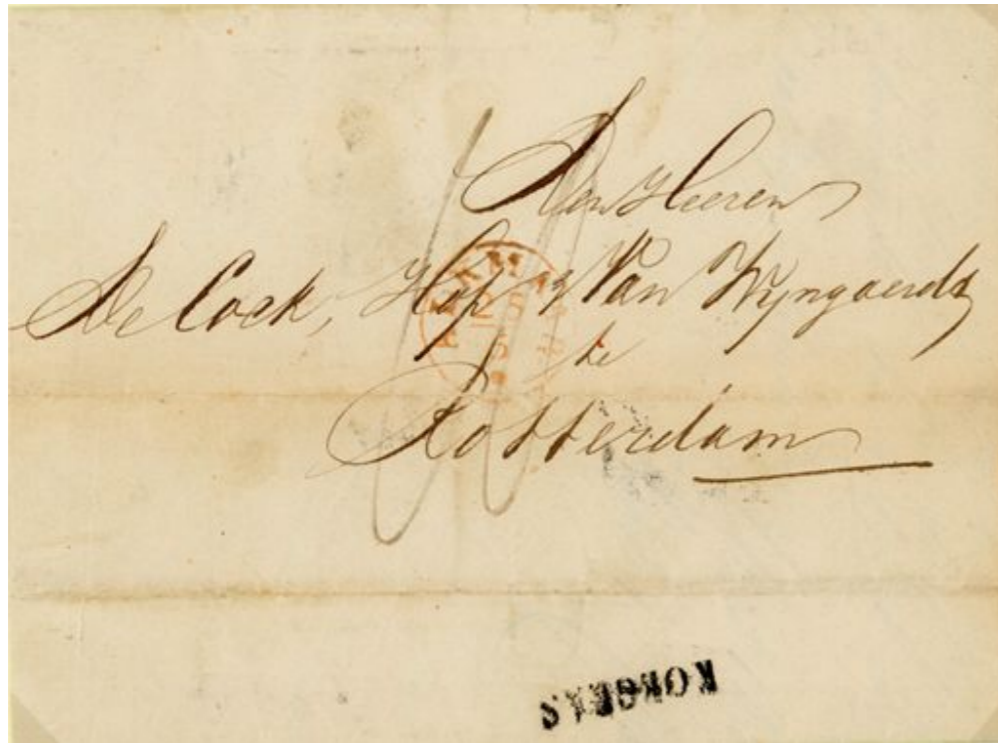 Den Heeren
De Cock, Hop & Van Wyngaerdt
te
Rotterdam
KOEGRAS